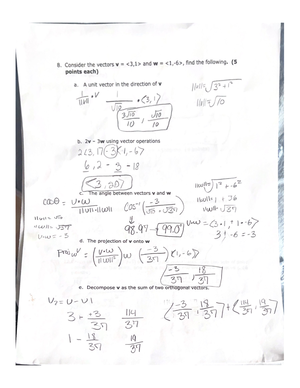 8. Consider the vectors v = <3,1> and w = <1,-6>, find the following. (5
points each)
a. A unit vector in the direction of v
||v|| = √3² + 1²
||v|| = √10
1/||v|| • v   1/√10 • <3,1>
3√10/10 , √10/10
b. 2v – 3w using vector operations
2<3,1> - 3<1,-6>
6,2 - 3 - 18
<3,20>
c. The angle between vectors v and w
||w|| = √1² + -6²
||w|| = 1 + 36
||w|| = √37
cosθ = v•w/||v||•||w||
cos⁻¹ -3/√10 • √37
||v|| = √10
||w|| = √37
v•w = -3
98.97 99.0°
v•w = <3•1 + 1•-6>
3 + -6 = -3
d. The projection of v onto w
proj_w v = (v•w/||w||²) w   (-3/37) <1,-6>
-3/37 , 18/37
e. Decompose v as the sum of two orthogonal vectors.
V₂ = V - V1
3 + +3/37   114/37
1 - 18/37   19/37
<-3/37 , 18/37> + <114/37 , 19/37>